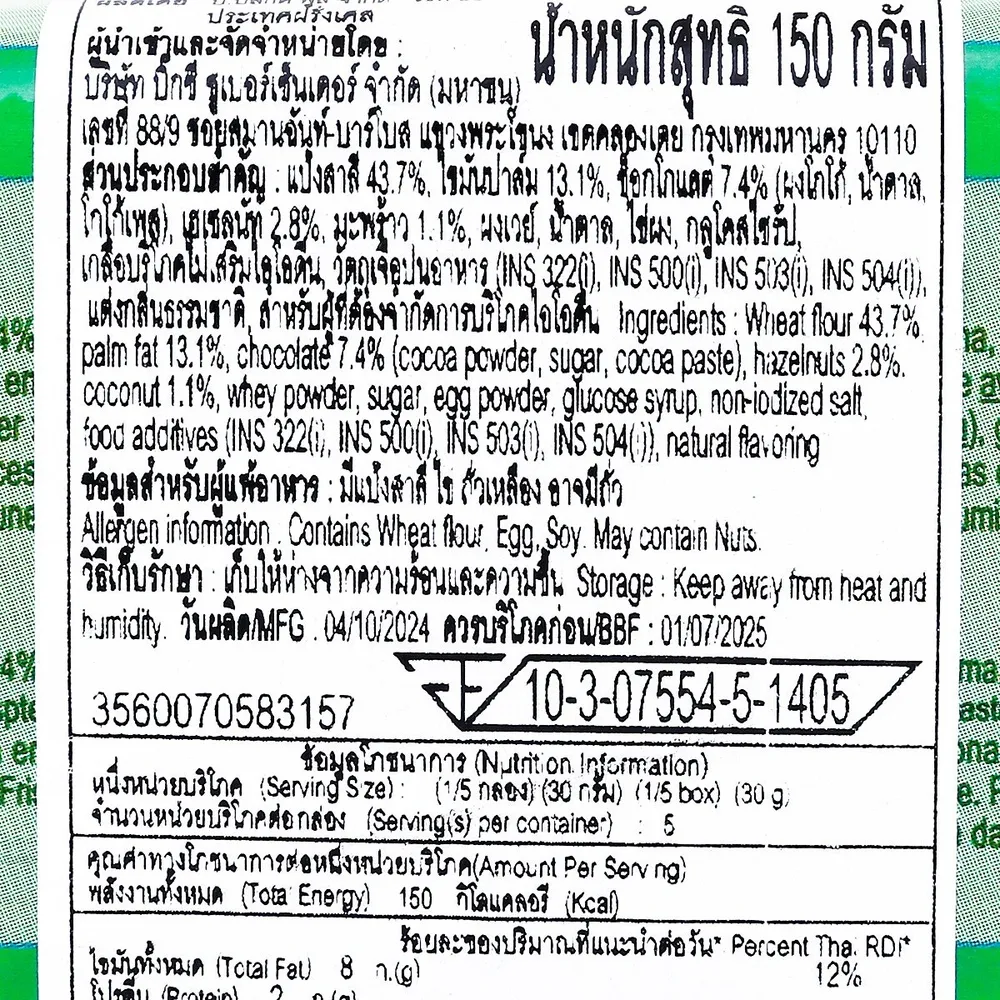 ประเทศฝรั่งเศส
ผู้นำเข้าและจัดจำหน่ายโดย :
น้ำหนักสุทธิ 150 กรัม
บริษัท บิ๊กซี ซูเปอร์เซ็นเตอร์ จำกัด (มหาชน)
เลขที่ 88/9 ซอยสมานฉันท์-บาร์โบส แขวงพระโขนง เขตคลองเตย กรุงเทพมหานคร 10110
ส่วนประกอบสำคัญ : แป้งสาลี 43.7%, ไขมันปาล์ม 13.1%, ช็อกโกแลต 7.4% (ผงโกโก้, น้ำตาล,
โกโก้เพส), เฮเซลนัท 2.8%, มะพร้าว 1.1%, ผงเวย์, น้ำตาล, ไข่ผง, กลูโคสไซรัป,
เกลือบริโภคไม่เสริมไอโอดีน, วัตถุเจือปนอาหาร (INS 322(i), INS 500(i), INS 503(i), INS 504(i)),
แต่งกลิ่นธรรมชาติ, สำหรับผู้ที่ต้องจำกัดการบริโภคไอโอดีน Ingredients : Wheat flour 43.7%,
palm fat 13.1%, chocolate 7.4% (cocoa powder, sugar, cocoa paste), hazelnuts 2.8%,
coconut 1.1%, whey powder, sugar, egg powder, glucose syrup, non-iodized salt,
food additives (INS 322(i), INS 500(i), INS 503(i), INS 504(i)), natural flavoring
ข้อมูลสำหรับผู้แพ้อาหาร : มีแป้งสาลี ไข่ ถั่วเหลือง อาจมีถั่ว
Allergen information : Contains Wheat flour, Egg, Soy. May contain Nuts.
วิธีเก็บรักษา : เก็บให้ห่างจากความร้อนและความชื้น Storage : Keep away from heat and
humidity. วันผลิต/MFG : 04/10/2024 ควรบริโภคก่อน/BBF : 01/07/2025
3560070583157
10-3-07554-5-1405
ข้อมูลโภชนาการ (Nutrition Information)
หนึ่งหน่วยบริโภค (Serving Size) : (1/5 กล่อง) (30 กรัม) (1/5 box) (30 g)
จำนวนหน่วยบริโภคต่อกล่อง (Serving(s) per container) : 5
คุณค่าทางโภชนาการต่อหนึ่งหน่วยบริโภค(Amount Per Serving)
พลังงานทั้งหมด (Total Energy) 150 กิโลแคลอรี (Kcal)
ร้อยละของปริมาณที่แนะนำต่อวัน* Percent Thai RDI*
ไขมันทั้งหมด (Total Fat) 8 ก.(g) 12%
โปรตีน (Protein) 2 ก.(g)